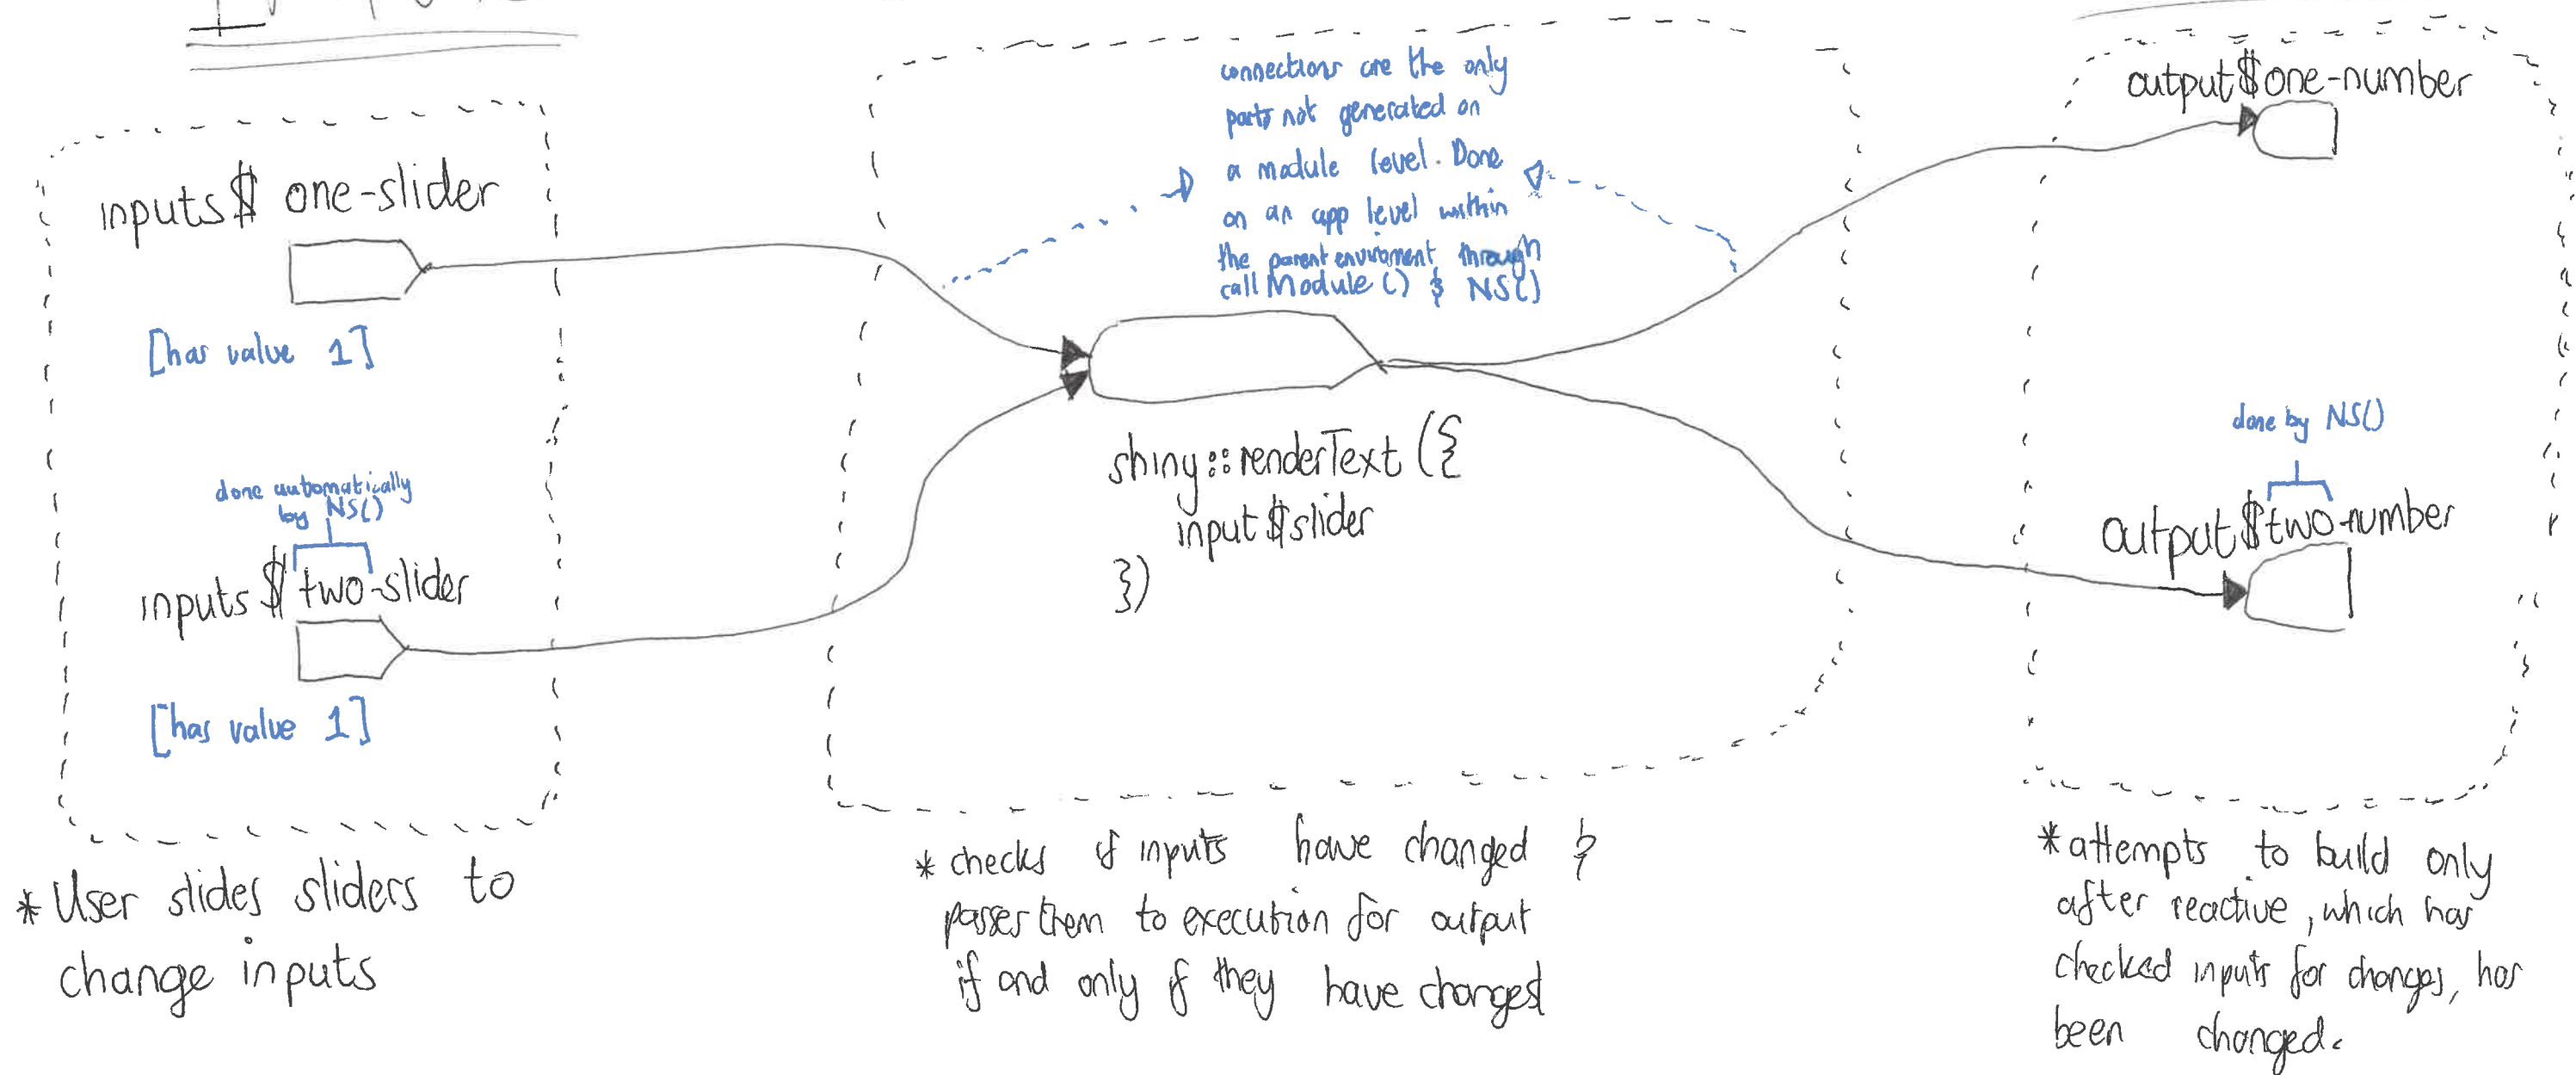 inputs$ one-slider
[has value 1]
done automatically
by NS()
inputs$ two-slider
[has value 1]
* User slides sliders to
change inputs
connections are the only
parts not generated on
a module level. Done
on an app level within
the parent enviroment through
callModule() & NS()
shiny::renderText({
input$slider
})
* checks if inputs have changed &
passes them to execution for output
if and only if they have changed
output$one-number
done by NS()
output$two-number
* attempts to build only
after reactive, which has
checked inputs for changes, has
been changed.